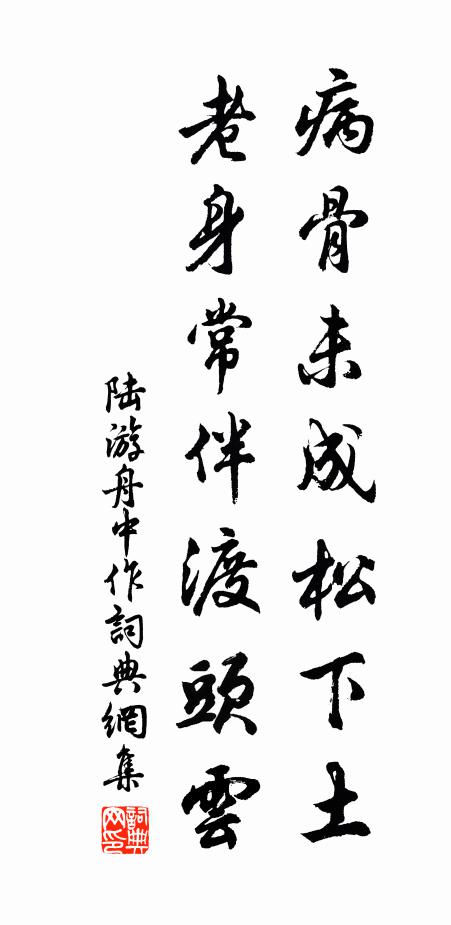 病骨未成松下土
老身常伴渡頭雲
陆游舟中作詞典網集
詞典網印